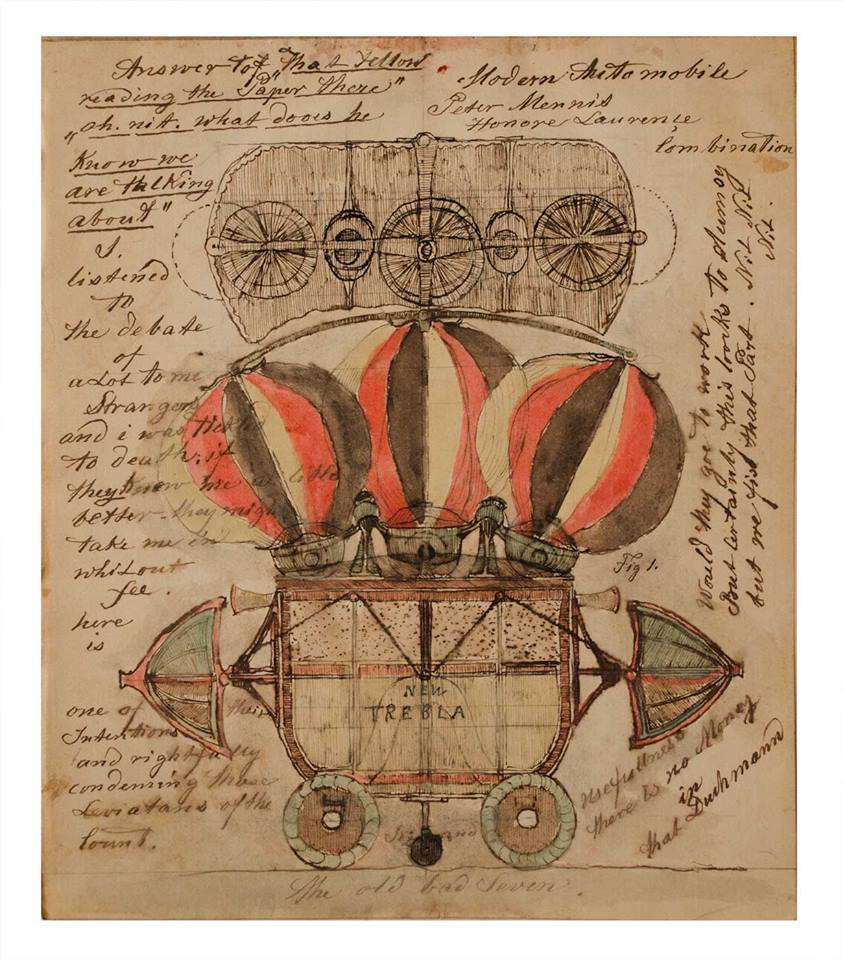 Answer tof "That Fellow
reading the Paper there"
"oh. nit. what does he
Know we
are talking
about"
I.
listened
to
the debate
of
a Lot to me
Strangers
and i was tickled
to death. if
they Know me a little
better they might
take me in
whitout
fee.
here
is
one of their
Intentions
and rightfully
condeming those
Leviatans of the
Count.
Modern Automobile
Peter Mennis
Honore Laurence
Combination
Would they goe to work
But certainly this looks to clumsy
but we fix that Part. Nit Nit
Nit.
Fig 1.
NEW
TREBLA
usefullness
there is no Money
in
that Duchmann
The old bad Seven.